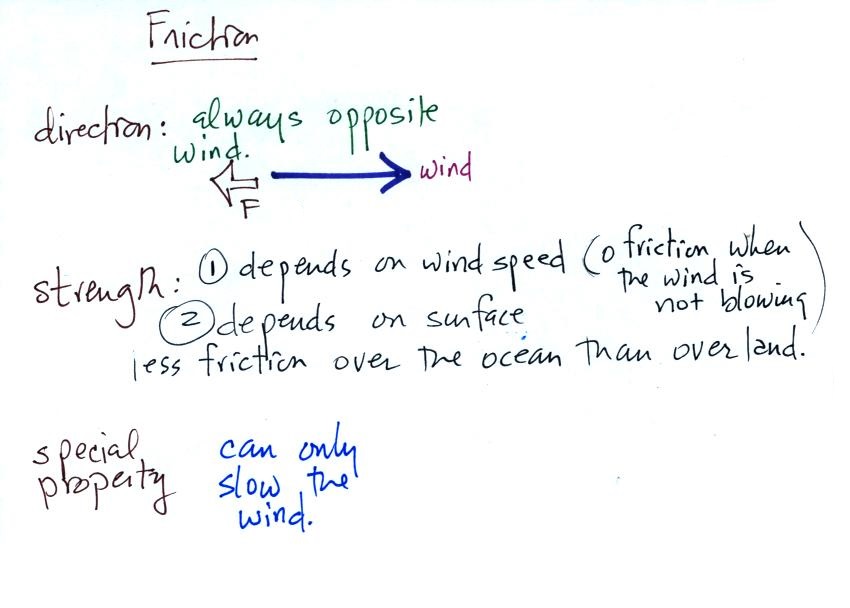 Friction
direction: always opposite
wind.
wind
F
strength: ① depends on wind speed (0 friction when
the wind is
not blowing)
② depends on surface
less friction over the ocean than over land.
special can only
property slow the
wind.